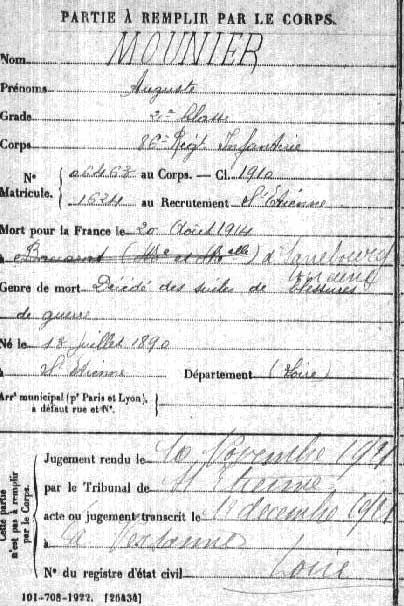 PARTIE À REMPLIR PAR LE CORPS.
Nom MOUNIER
Prénoms Auguste
Grade 2me Classe
Corps 86e Régt Infanterie
N° 06463 au Corps. — Cl. 1910
Matricule. 1634 au Recrutement St Etienne
Mort pour la France le 20 Août 1914
à (Mthe et Mlle) à Sarrebourg
Genre de mort Décédé des suites de blessures
de guerre
Né le 18 juillet 1890
à St Etienne Département (Loire)
Arrt municipal (pr Paris et Lyon),
à défaut rue et N°.
Cette partie
n'est pas à remplir
par le Corps.
Jugement rendu le Novembre 1921
par le Tribunal de St Etienne
acte ou jugement transcrit le décembre 1921
à La Versanne
N° du registre d'état civil Loire
101-708-1922. [26434]